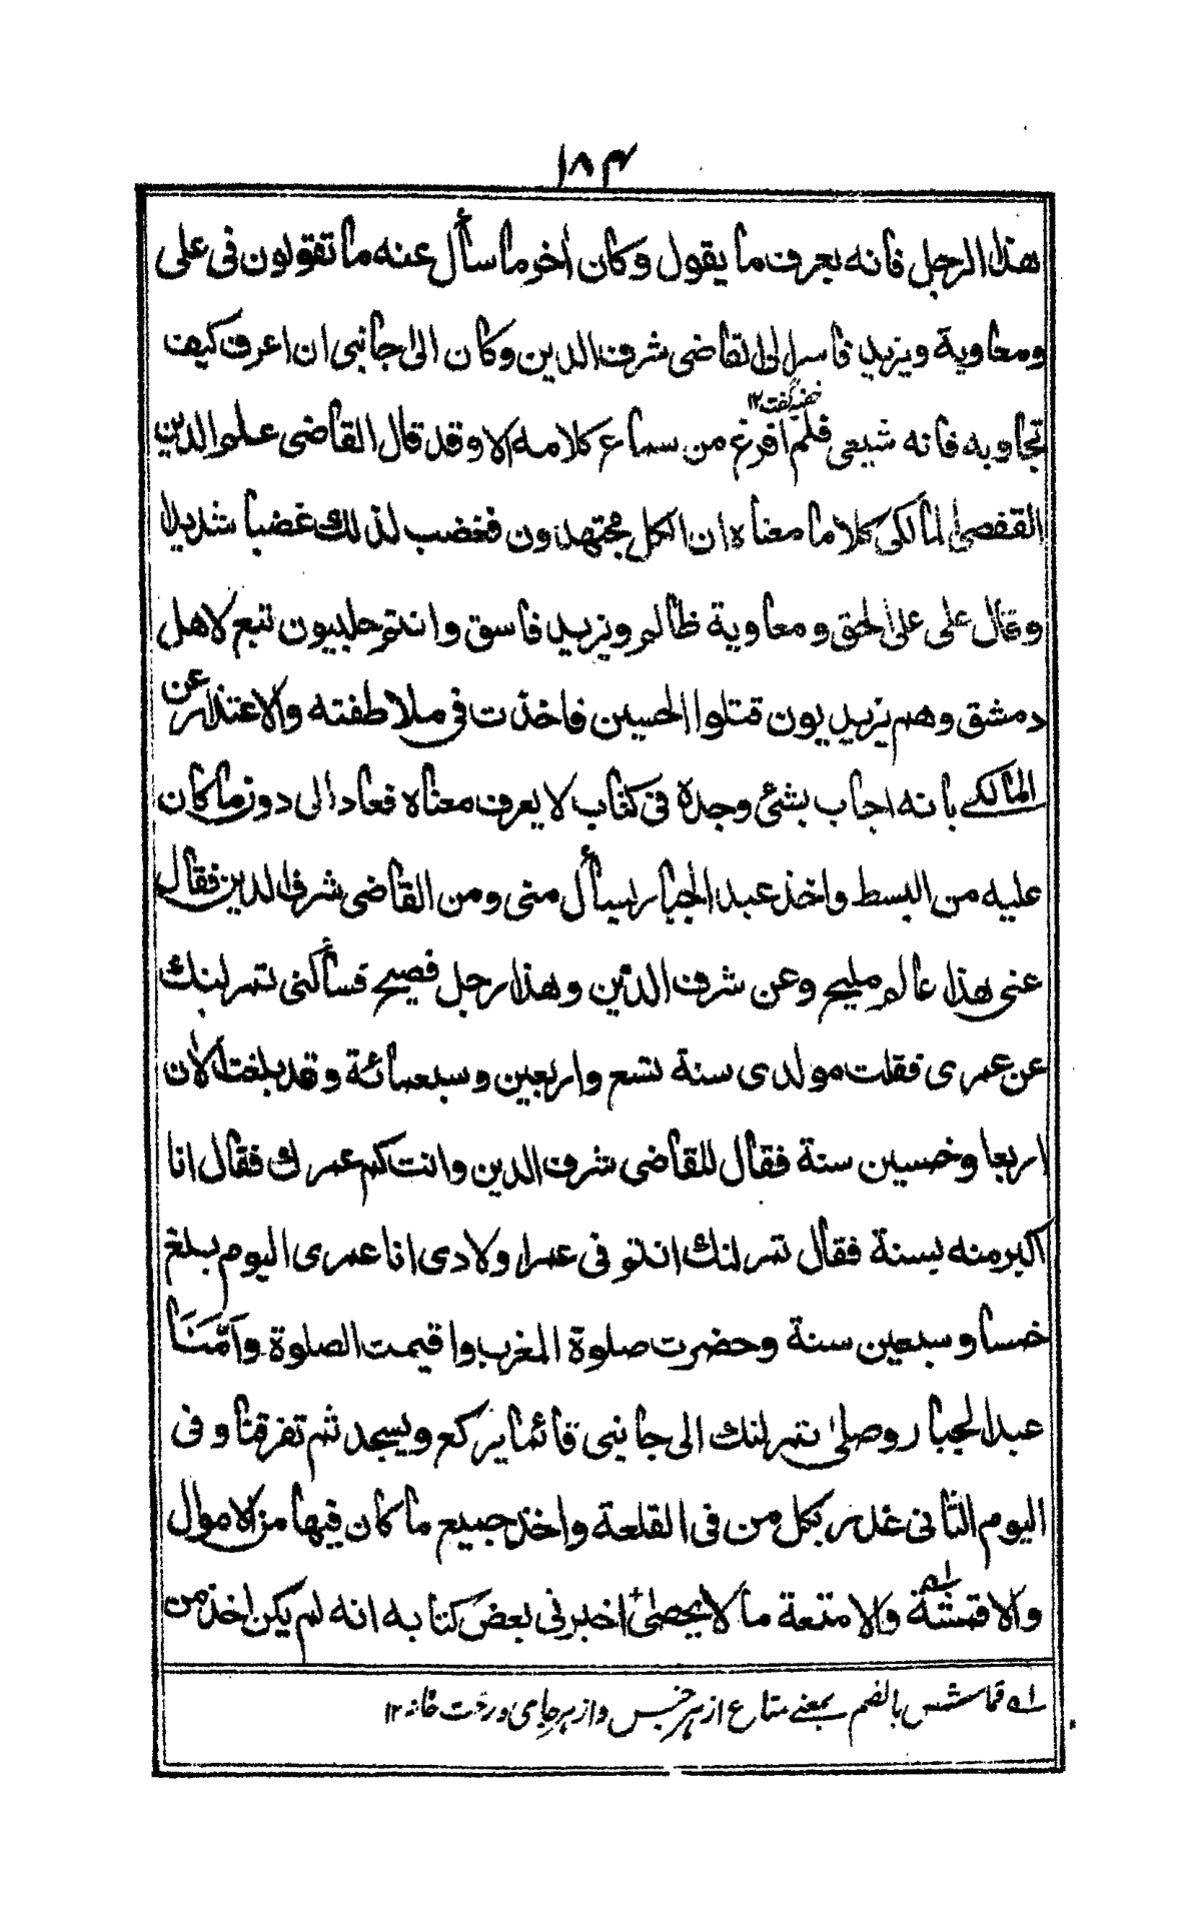 ١٨٤
هذا الرجل فانه يعرف ما يقول وكان أخر ما سأل عنه ما تقولون فى على
ومعاوية ويزيد فاسر الى القاضى شرف الدين وكان الى جانبى ان اعرف كيف
خفيه گفت ١٢
تجاوبه فانه شيعى فلم افرغ من سماع كلامه الا وقد قال القاضى علم الدين
القفصى المالكى كلاما معناه ان الكل مجتهدون فغضب لذلك غضبا شديدا
وقال على على الحق ومعاوية ظالم ويزيد فاسق وانتم حلبيون تبع لاهل
دمشق وهم يزيديون قتلوا الحسين فاخذت فى ملاطفته والاعتذار عن
المالكے بانه اجاب بشئ وجده فى كتاب لا يعرف معناه فعاد الى دون ما كان
عليه من البسط واخذ عبد الجبار يسأل منى ومن القاضى شرف الدين فقال
عنى هذا عالم مليح وعن شرف الدين وهذا رجل فصيح فسألنى تمرلنك
عن عمرى فقلت مولدى سنة تسع واربعين وسبعمائة وقد بلغت الأن
اربعا وخمسين سنة فقال للقاضى شرف الدين وانت كم عمرك فقال انا
اكبر منه بسنة فقال تمرلنك انتم فى عمر اولادى انا عمرى اليوم يبلغ
خمسا وسبعين سنة وحضرت صلوة المغرب واقيمت الصلوة وأمّنا
عبد الجبار وصلى تمرلنك الى جانبى قائما يركع ويسجد ثم تفرقنا وفى
اليوم الثانى غدر بكل من فى القلعة واخذ جميع ما كان فيها من الاموال
والاقمشة والامتعة ما لا يحصى اخبر فى بعض كتابه انه لم يكن اخذ من
له قماش بالضم بمعنے متاع از هر جنس و از هر جاى و رخت خانه ١٢